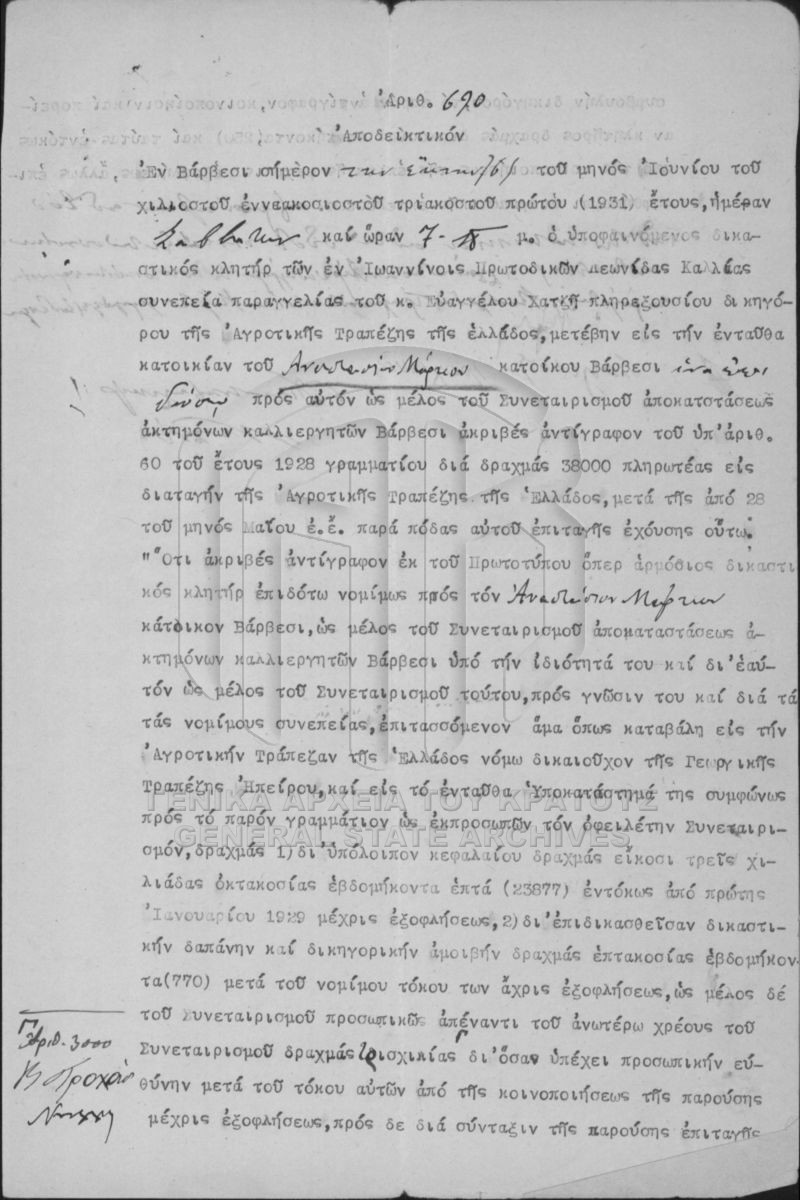 Ἀριθ. 690
Ἀποδεικτικόν
Ἐν Βάρβεσι σήμερον τοῦ μηνός Ἰουνίου τοῦ
χιλιοστοῦ ἐννεακοσιοστοῦ τριακοστοῦ πρώτου (1931) ἔτους, ἡμέραν
Σάββατον καί ὥραν 7- μ. ὁ ὑποφαινόμενος δικα-
στικός κλητήρ τῶν ἐν Ἰωαννίνοις Πρωτοδικῶν Λεωνίδας Καλλέας
συνεπείᾳ παραγγελίας τοῦ κ. Εὐαγγέλου Χατζῆ πληρεξουσίου δικηγό-
ρου τῆς Ἀγροτικῆς Τραπέζης τῆς Ἑλλάδος, μετέβην εἰς τήν ἐνταῦθα
κατοικίαν τοῦ Ἀναστασίου Μάρκου κατοίκου Βάρβεσι ἵνα ἐπι
δώσω πρός αὐτόν ὡς μέλος τοῦ Συνεταιρισμοῦ ἀποκαταστάσεως
ἀκτημόνων καλλιεργητῶν Βάρβεσι ἀκριβές ἀντίγραφον τοῦ ὑπ'ἀριθ.
60 τοῦ ἔτους 1928 γραμματίου διά δραχμάς 38000 πληρωτέας εἰς
διαταγήν τῆς Ἀγροτικῆς Τραπέζης τῆς Ἑλλάδος, μετά τῆς ἀπό 28
τοῦ μηνός Μαΐου ἐ.ἔ. παρά πόδας αὐτοῦ ἐπιταγῆς ἐχούσης οὕτω.
"Ὅτι ἀκριβές ἀντίγραφον ἐκ τοῦ Πρωτοτύπου ὅπερ ἁρμόδιος δικαστι
κός κλητήρ ἐπιδότω νομίμως πρός τόν Ἀναστάσιον Μάρκου
κάτοικον Βάρβεσι, ὡς μέλος τοῦ Συνεταιρισμοῦ ἀποκαταστάσεως ἀ-
κτημόνων καλλιεργητῶν Βάρβεσι ὑπό τήν ἰδιότητά του καί δι'ἑαυ-
τόν ὡς μέλος τοῦ Συνεταιρισμοῦ τούτου, πρός γνῶσιν του καί διά τά
τάς νομίμους συνεπείας, ἐπιτασσόμενον ἅμα ὅπως καταβάλῃ εἰς τήν
Ἀγροτικήν Τράπεζαν τῆς Ἑλλάδος νόμῳ δικαιοῦχον τῆς Γεωργικῆς
Τραπέζης Ἠπείρου, καί εἰς τό ἐνταῦθα Ὑποκατάστημά της συμφώνως
πρός τό παρόν γραμμάτιον ὡς ἐκπροσωπῶν τόν ὀφειλέτην Συνεταιρι-
σμόν, δραχμάς 1)δι'ὑπόλοιπον κεφαλαίου δραχμάς εἴκοσι τρεῖς χι-
λιάδας ὀκτακοσίας ἑβδομήκοντα ἑπτά (23877) ἐντόκως ἀπό πρώτης
Ἰανουαρίου 1929 μέχρις ἐξοφλήσεως, 2)δι'ἐπιδικασθεῖσαν δικαστι-
κήν δαπάνην καί δικηγορικήν ἀμοιβήν δραχμάς ἑπτακοσίας ἑβδομήκον-
τα(770) μετά τοῦ νομίμου τόκου των ἄχρις ἐξοφλήσεως, ὡς μέλος δέ
τοῦ Συνεταιρισμοῦ προσωπικῶς ἀπέναντι τοῦ ἀνωτέρω χρέους τοῦ
Συνεταιρισμοῦ δραχμάς τρισχιλίας δι'ὅσαν ὑπέχει προσωπικήν εὐ-
θύνην μετά τοῦ τόκου αὐτῶν ἀπό τῆς κοινοποιήσεως τῆς παρούσης
μέχρις ἐξοφλήσεως, πρός δε διά σύνταξιν τῆς παρούσης ἐπιταγῆς
Ἀριθ. 3000
ΓΕΝΙΚΑ ΑΡΧΕΙΑ ΤΟΥ ΚΡΑΤΟΥΣ
GENERAL STATE ARCHIVES